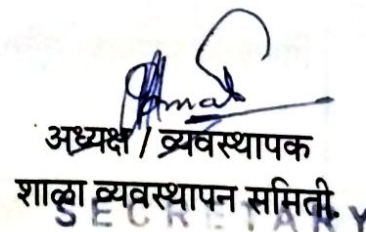 अध्यक्ष / व्यवस्थापक
शाळा व्यवस्थापन समिती.
SECRETARY